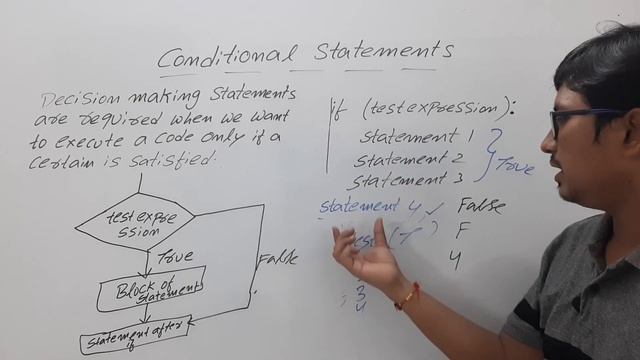 Conditional Statements
Decision making Statements
are required when we want
to execute a code only if a
certain is satisfied.
test expre
ssion
True
False
Block of
statement
Statement after
if
if (test expression):
Statement 1
Statement 2
Statement 3
True
Statement 4 ✓
False
F
4
3
4